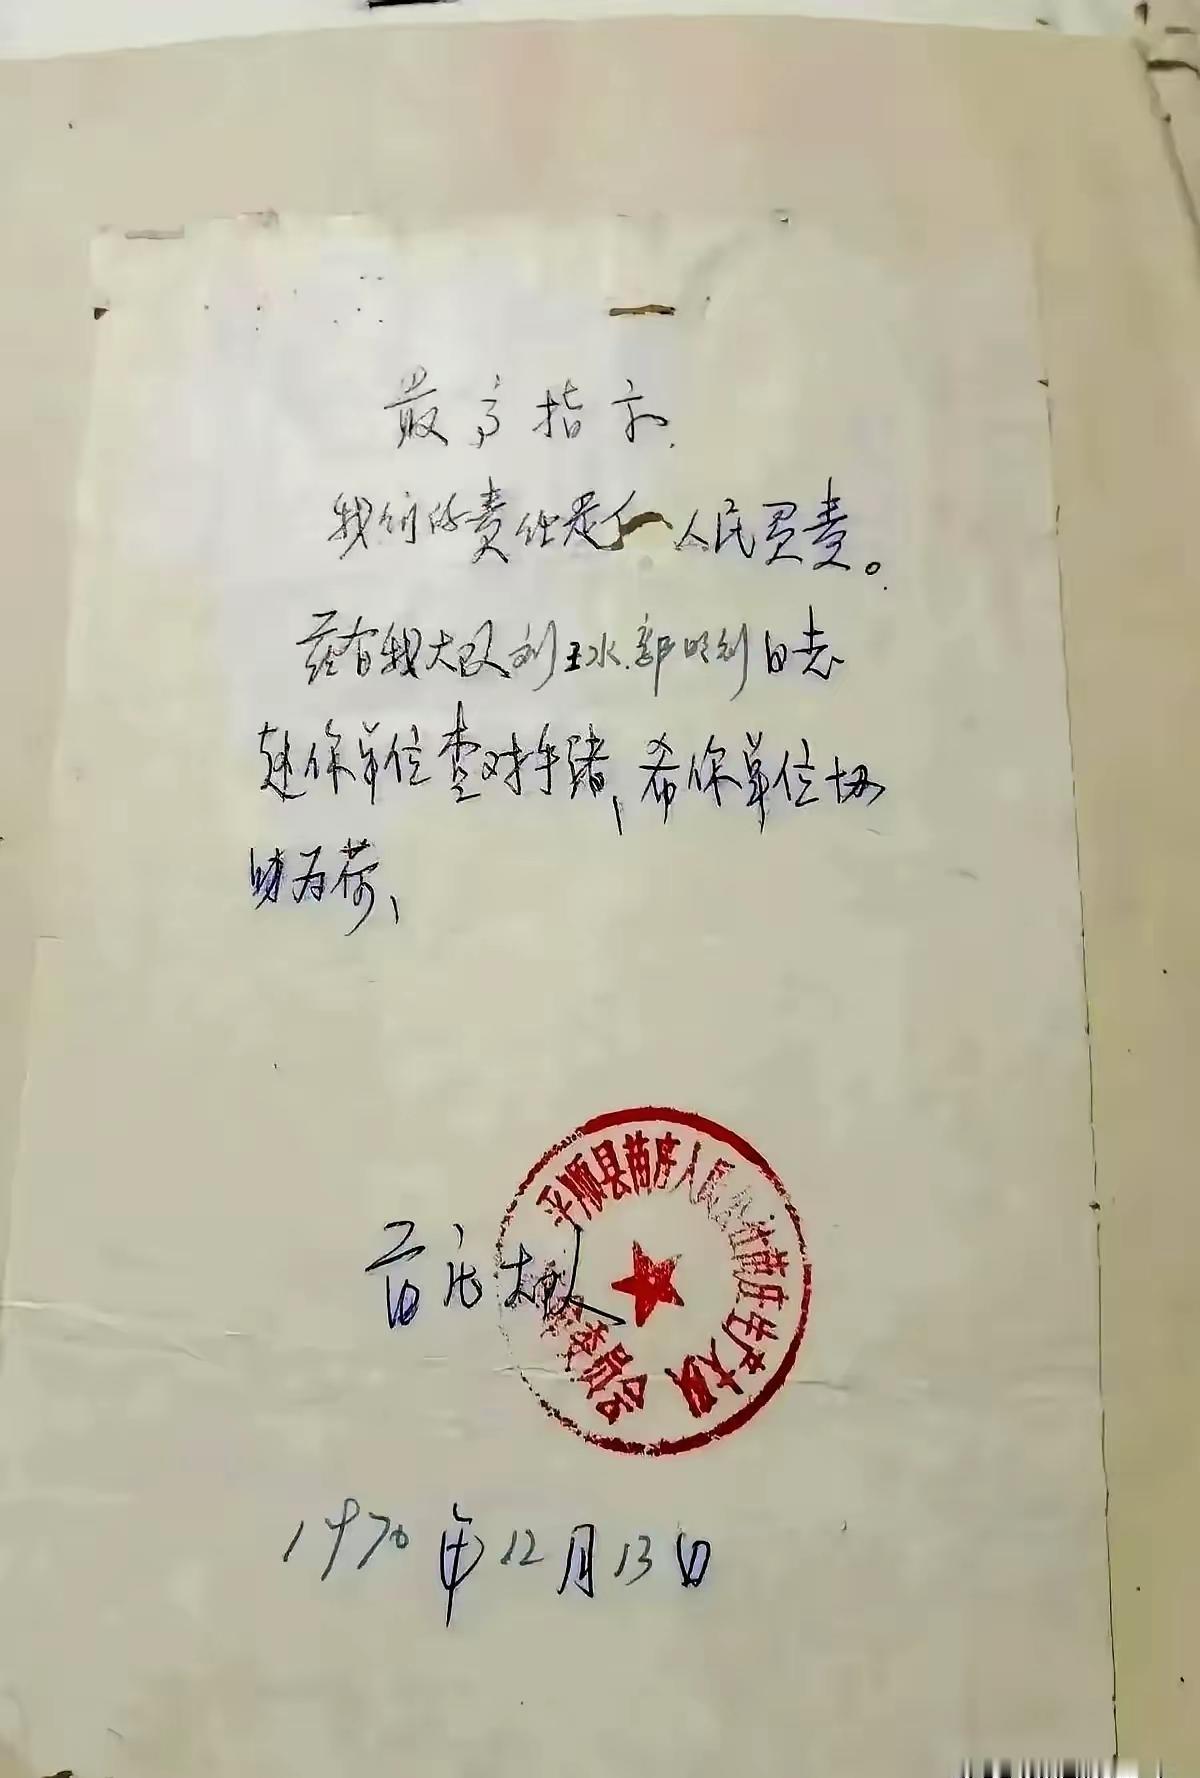 最高指示
我们的责任是 人民负责。
兹有我大队刘玉水、郭明则同志
赴你单位查对手续，希你单位协
助为荷、
苗庄大队
平顺县苗庄人民公社苗庄生产大队 委员会
1970年12月13日